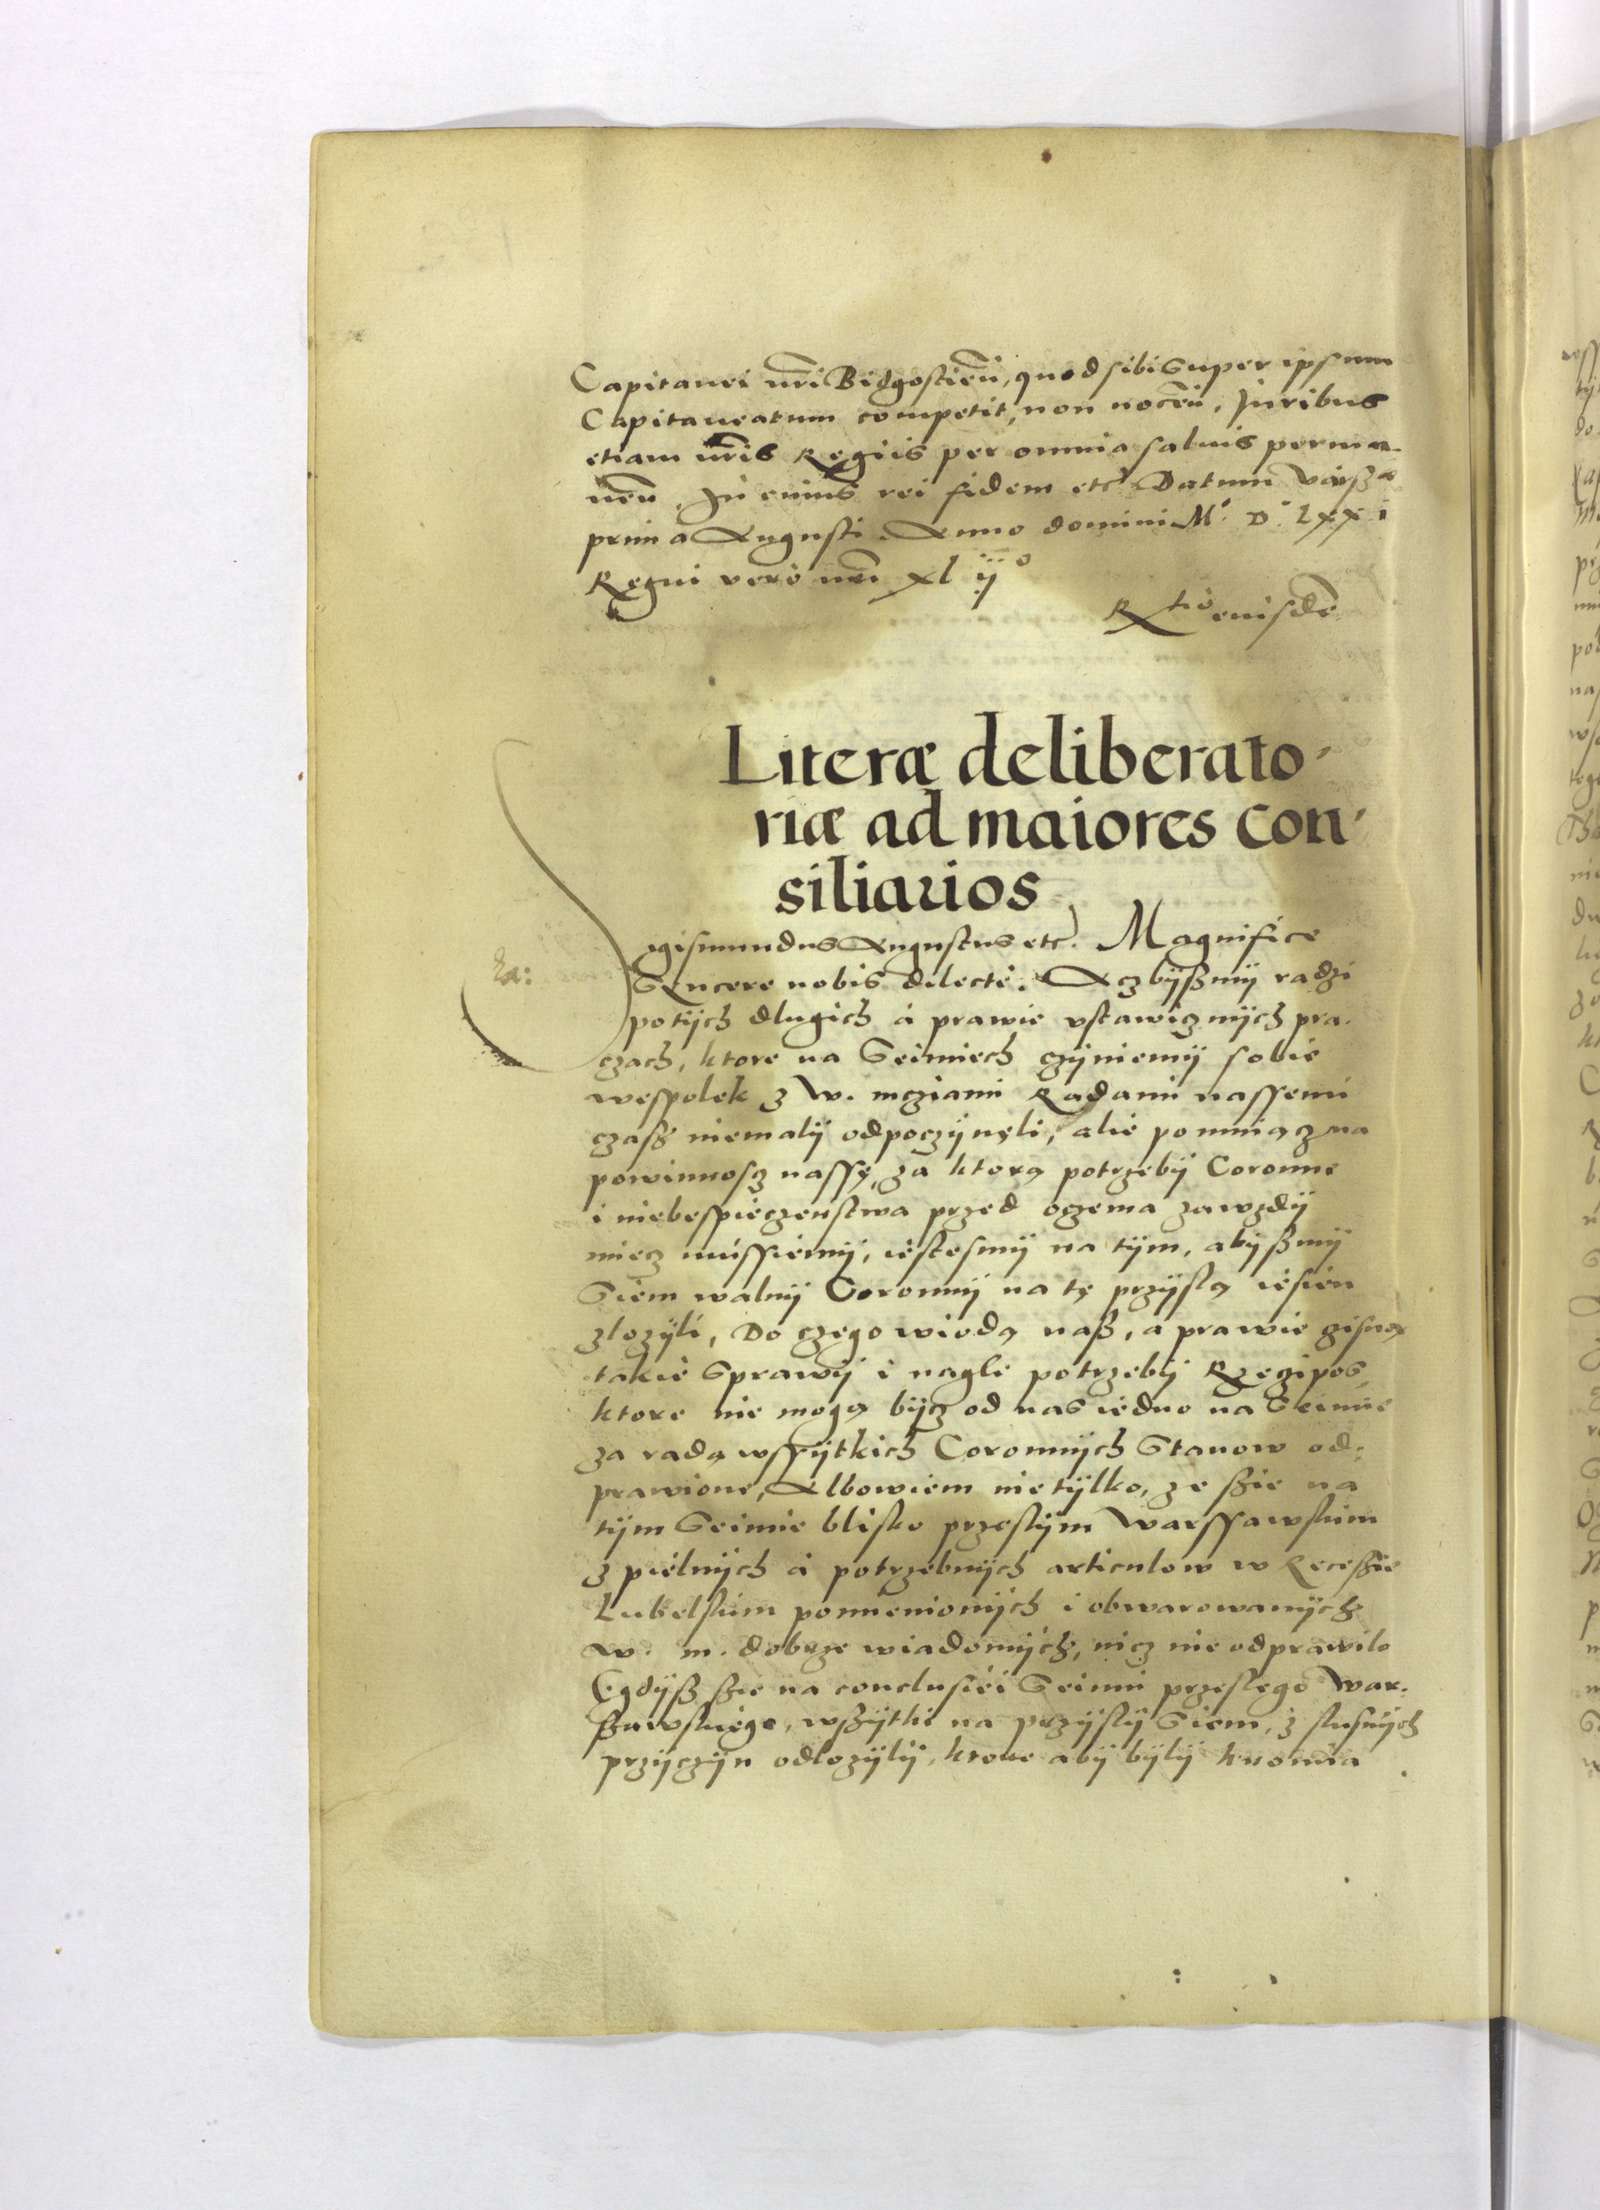 Capitanei nri Bidgostien, quod sibi super ipsum
Capitaneatum competit, non nocen, Juribus
etiam nris Regiis per omnia salvis perma-
nen. In cuius rei fidem etc Datum Varß
prima Augusti. Anno domini Mo. Do. Lxx i
Regni vero nri xl ijo
Rtio euisde
Literæ deliberato-
riæ ad maiores con-
siliarios
Sigismundus Augustus etc. Magnifice
Syncere nobis dilecte. Aczbÿßmÿ radzi
potÿch dlugich á prawie vstawicznÿch pra-
czach, ktore na Seimiech czÿniemÿ sobie
wespolek z w. mcziami Radami nassemi
czaß niemalÿ odpoczÿnęli, alie pomniącz na
powinnoscz nassę, za ktorą potrzebÿ Coronne
i niebespieczenstwa przed oczema zawzdÿ
miecz mussiemÿ, iestesmÿ na tÿm, abÿßmÿ
Siem walnÿ Coronnÿ na tę przÿslą iesien
zlozÿli, Do czego wiodą naß, a prawie cisną
takie Sprawÿ i nagle potrzebÿ Rzeczipos,
ktore nie mogą bÿcz od nas iedno na Seimie
za radą wssÿtkich Coronnÿch Stanow od-
prawione, Albowiem nie tÿlko, ze ßie na
tÿm Seimie blisko przeslÿm Warssawskim
z pielnÿch á potrzebnÿch articulow w Recessie
Lubelskim pomnenionÿch i obwarowanÿch
w. m. dobrze wiadomÿch, nicz nie odprawilo
Gdÿß ßie na conclusiei Seimu przeslego War-
ßawskiego, wßÿtki na przÿslÿ Siem, z slusnÿch
przÿczÿn odlozÿlÿ, ktore abÿ bÿlÿ